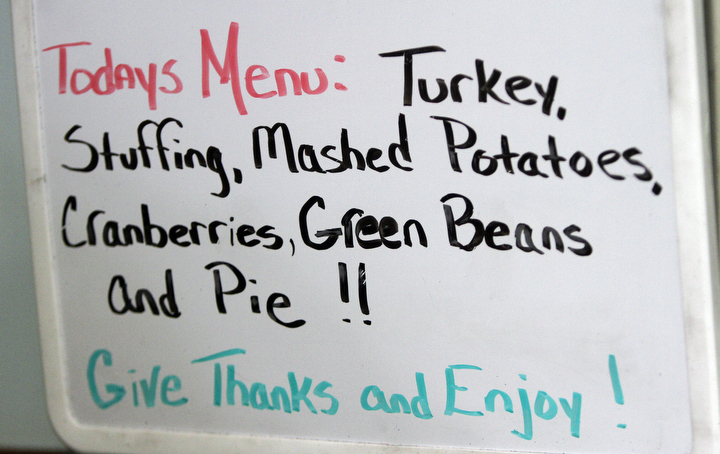 Todays Menu: Turkey,
Stuffing, Mashed Potatoes,
Cranberries, Green Beans
and Pie !!
Give Thanks and Enjoy !